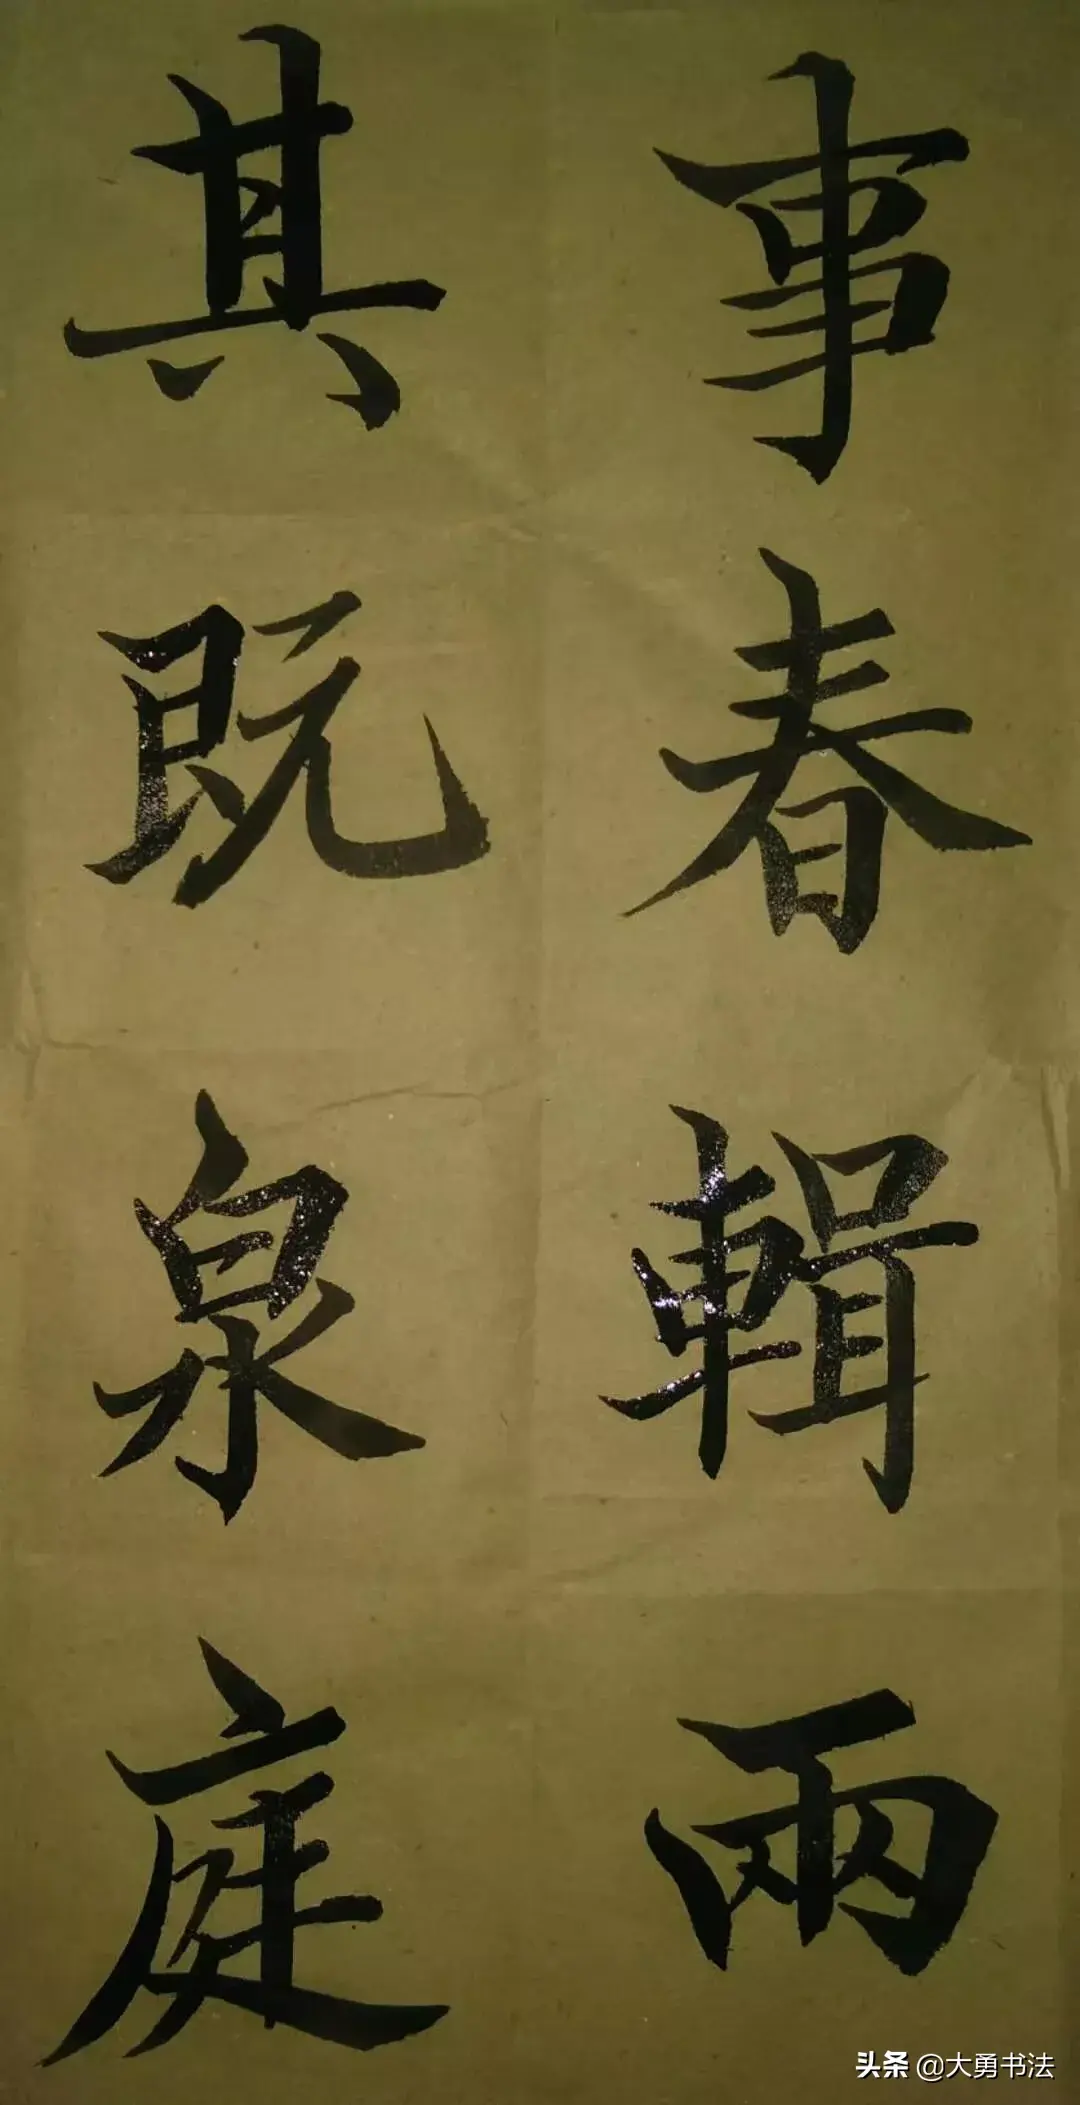 事春輯兩
其既泉庭
头条 @大勇书法